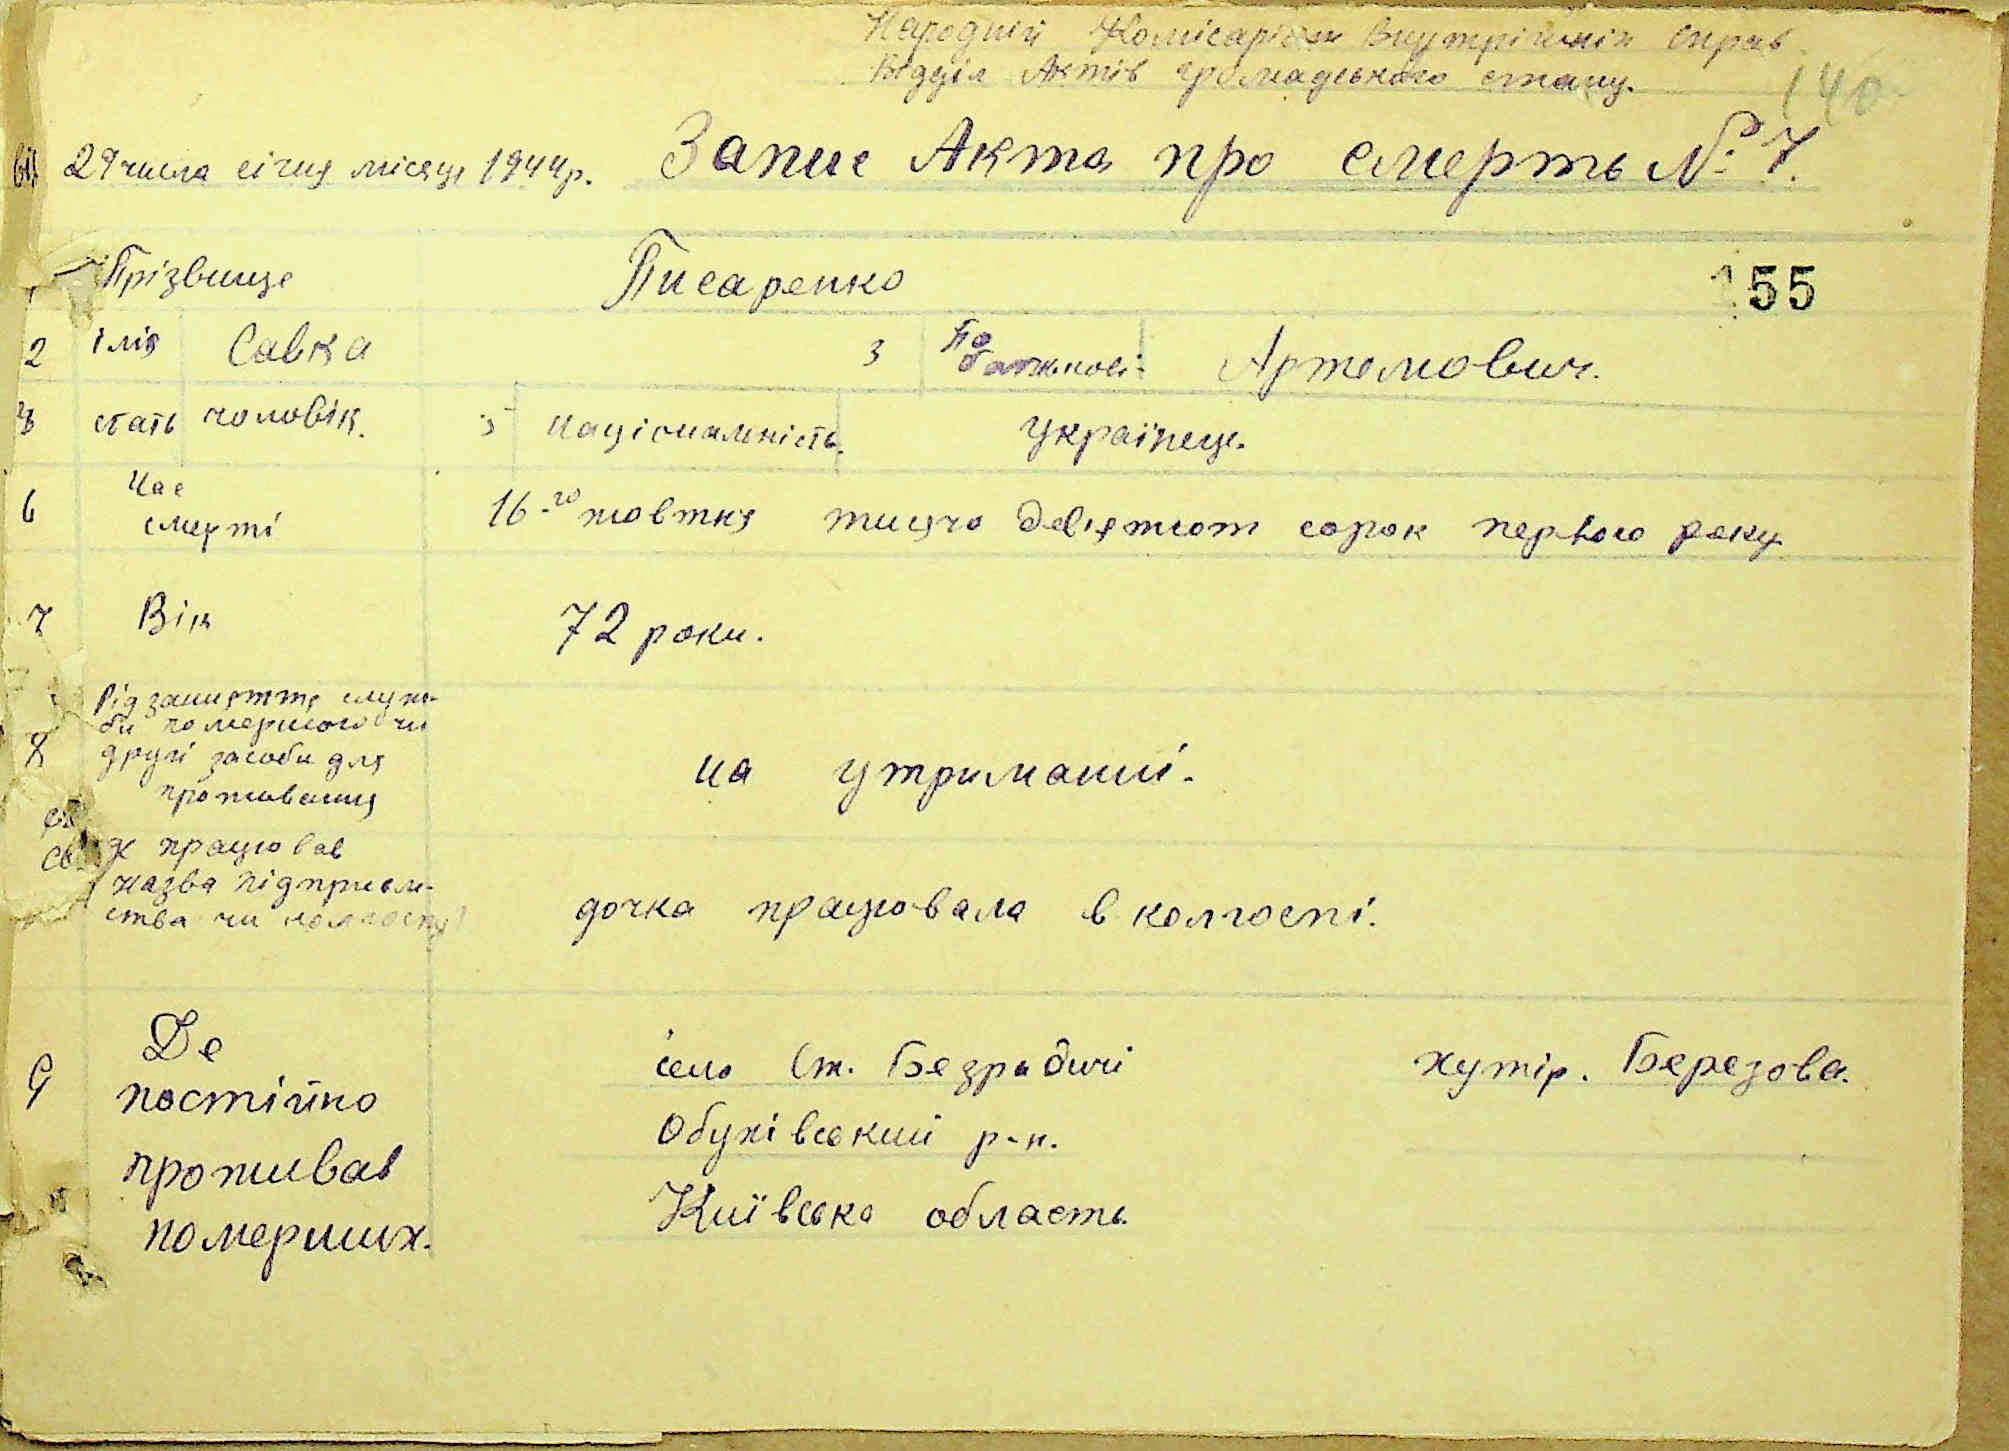 Народній Комісаріат Внутрішніх Справ
Відділ Актів громадського стану.
140
від 29 числа січня місяця 1944 р. Запис Акта про смерть № 7.
Прізвище Писаренко
155
2 імя Савка 3 По батькові Артемович.
стать чоловік. 5 національність. Українець.
6 Час смерті 16-го жовтня тисячо девятсот сорок первого року
7 Вік 72 роки.
8 Рід заняття служ-
би помершого чи
другі засоби для
проживання
на утриманні.
де працював
назва підприєм-
ства чи колгоспу
дочка працювала в колгоспі.
9 Де
постійно
проживав
померших.
село Ст. Безрадичі хутір. Березова.
Обухівський р-н.
Київська область.